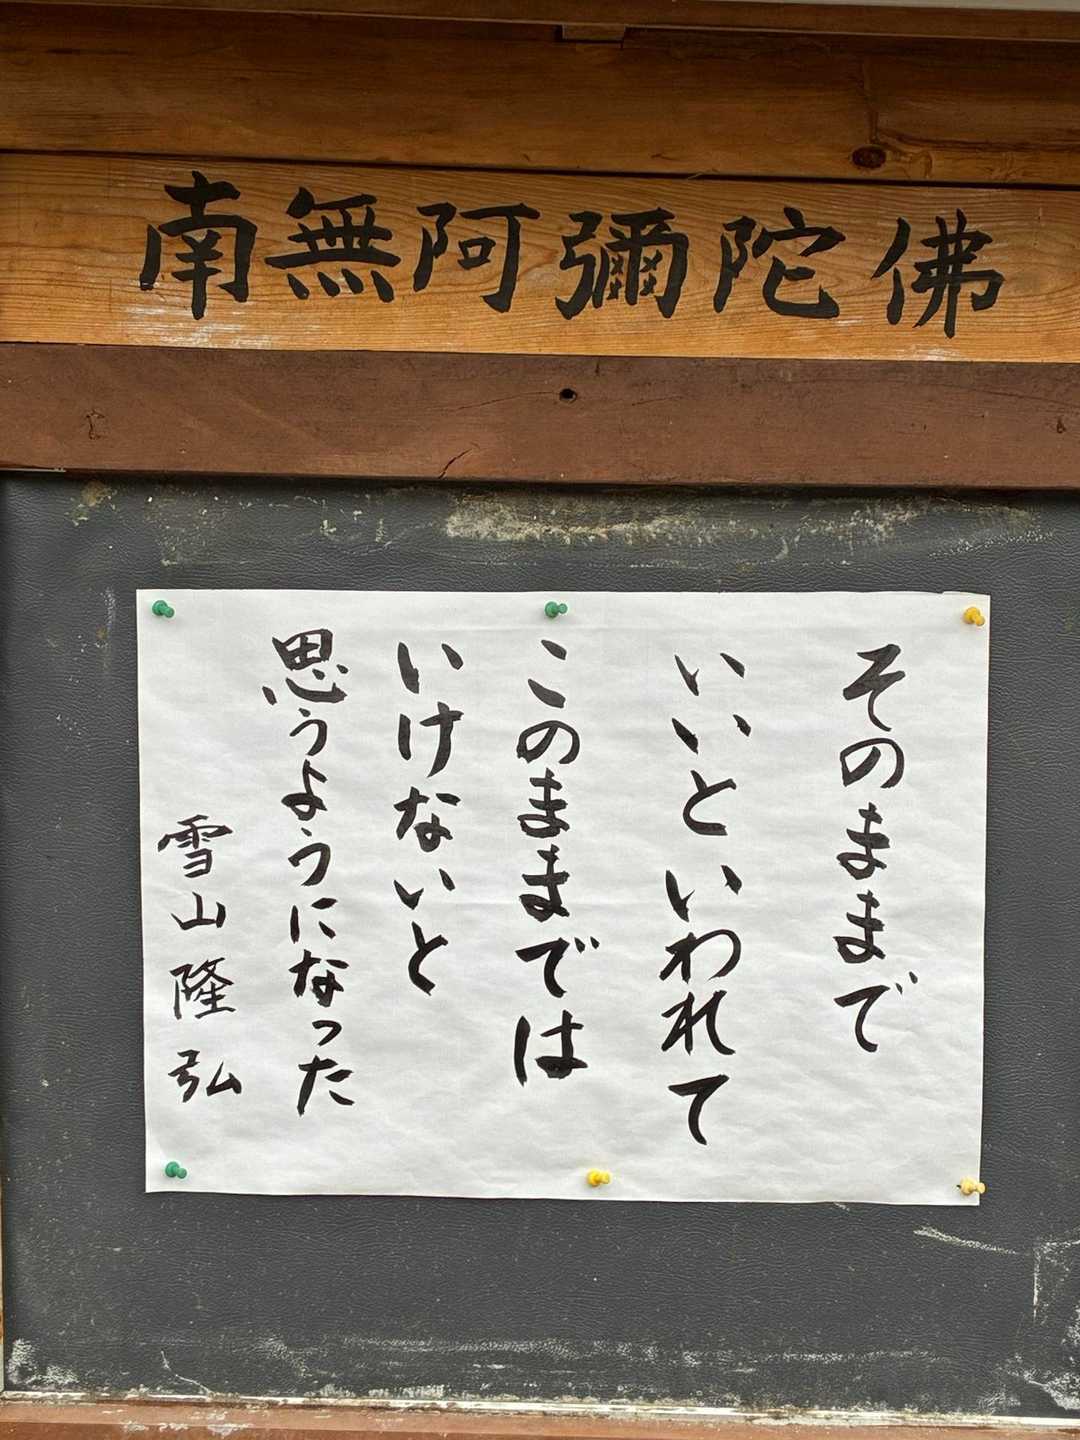 南無阿彌陀佛
そのままで
いいといわれて
このままでは
いけないと
思うようになった
雪山隆弘